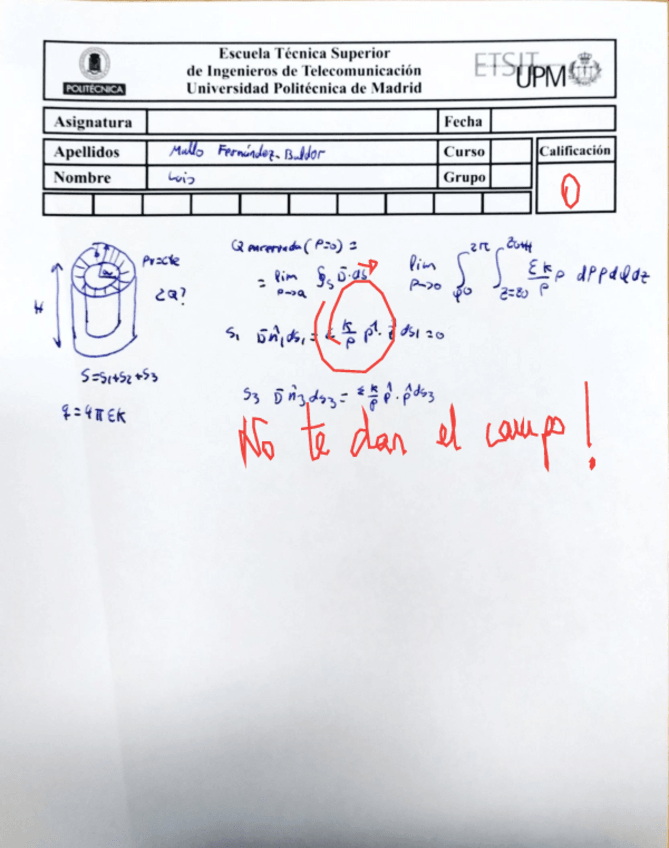 Escuela Técnica Superior
de Ingenieros de Telecomunicación
Universidad Politécnica de Madrid
POLITÉCNICA
ETSIT
UPM
Asignatura
Fecha
Apellidos Mallo Fernández-Baldor
Curso
Calificación
Nombre Luis
Grupo
0
H
ρv=cte
¿Q?
S=S1+S2+S3
q=4πεK
Q encerrada (ρ=0) =
= lim ρ→0 ∮s D̄·ds
lim ρ→0 ∫φ=0 2π ∫z=z0 z0+H εk/ρ ρ dρ ρ dφ dz
S1 D̄ n̂1 ds1 = ε k/ρ ρ̂ · ẑ ds1 = 0
S3 D̄ n̂3 ds3 = ε k/ρ ρ̂ · ρ̂ ds3
No te dan el campo!